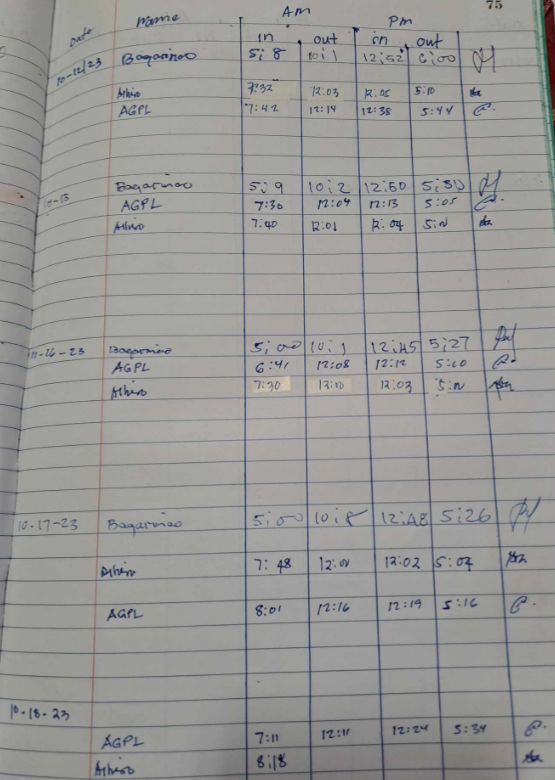 75
Date Name Am Pm
in out in out
10-12/23 Bagarinao 5;8 10;1 12;52 6;00
7:32 12:03 12:05 5:10
AGPL 7:42 12:14 12:38 5:44
10-13 Bagarinao 5;9 10;2 12;50 5;30
AGPL 7:30 12:04 12:13 5:05
7:40 12:01 12:04
10-16-23 Bagarinao 5;00 10;1 12;45 5;27
AGPL 6:41 12:08 12:12 5:20
7:30 12:10 12:03
10-17-23 Bagarinao 5;00 10;8 12;48 5;26
7:48 12:02 5:04
AGPL 8:01 12:16 12:19 5:16
10-18-23
AGPL 7:11 12:11 12:24 5:34
8;18